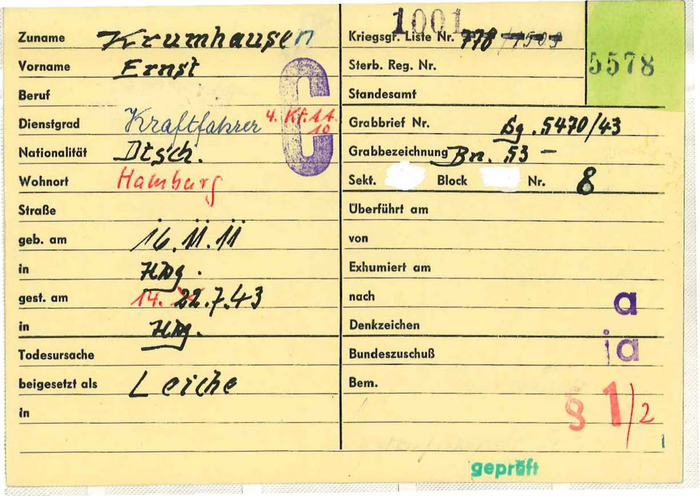 1001
Zuname Krumhausen
Vorname Ernst
Beruf
Dienstgrad Kraftfahrer 4. Kf. 11
10
Nationalität Dtsch.
Wohnort Hamburg
Straße
geb. am 16. 11. 11
in Hbg.
gest. am 14. 22.7.43
in Hbg.
Todesursache
beigesetzt als Leiche
in
C
Kriegsgr. Liste Nr. 778
Sterb. Reg. Nr.
5578
Standesamt
Grabbrief Nr. 5470/43
Grabbezeichnung Bn. 53 –
Sekt. Block Nr. 8
Überführt am
von
Exhumiert am
nach
a
Denkzeichen
Bundeszuschuß ja
Bem.
§ 1/2
geprüft